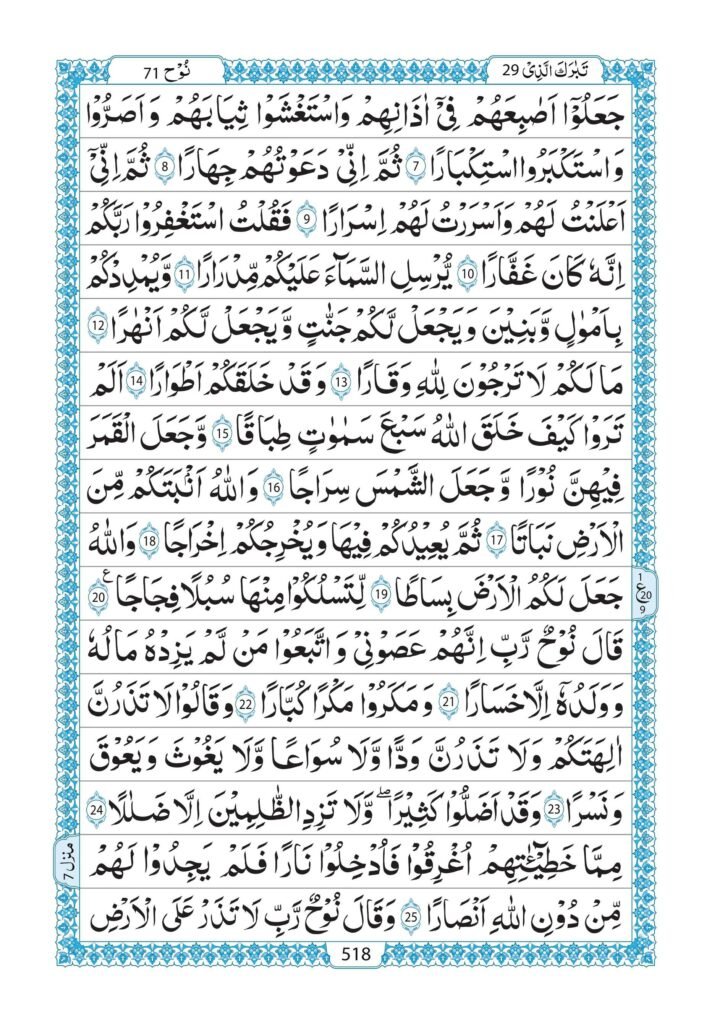 تَبٰرَكَ الَّذِیْ 29
نُوْح 71
جَعَلُوْۤا اَصَابِعَهُمْ فِیْۤ اٰذَانِهِمْ وَاسْتَغْشَوْا ثِیَابَهُمْ وَاَصَرُّوْا
وَاسْتَكْبَرُوا اسْتِكْبَارًا 7 ثُمَّ اِنِّیْ دَعَوْتُهُمْ جِهَارًا 8 ثُمَّ اِنِّیْۤ
اَعْلَنْتُ لَهُمْ وَاَسْرَرْتُ لَهُمْ اِسْرَارًا 9 فَقُلْتُ اسْتَغْفِرُوْا رَبَّكُمْ
اِنَّهٗ كَانَ غَفَّارًا 10 یُّرْسِلِ السَّمَآءَ عَلَیْكُمْ مِّدْرَارًا 11 وَّیُمْدِدْكُمْ
بِاَمْوٰلٍ وَّبَنِیْنَ وَیَجْعَلْ لَّكُمْ جَنّٰتٍ وَّیَجْعَلْ لَّكُمْ اَنْهٰرًا 12
مَا لَكُمْ لَا تَرْجُوْنَ لِلّٰهِ وَقَارًا 13 وَقَدْ خَلَقَكُمْ اَطْوَارًا 14 اَلَمْ
تَرَوْا كَیْفَ خَلَقَ اللّٰهُ سَبْعَ سَمٰوٰتٍ طِبَاقًا 15 وَّجَعَلَ الْقَمَرَ
فِیْهِنَّ نُوْرًا وَّجَعَلَ الشَّمْسَ سِرَاجًا 16 وَاللّٰهُ اَنْۢبَتَكُمْ مِّنَ
الْاَرْضِ نَبَاتًا 17 ثُمَّ یُعِیْدُكُمْ فِیْهَا وَیُخْرِجُكُمْ اِخْرَاجًا 18 وَاللّٰهُ
جَعَلَ لَكُمُ الْاَرْضَ بِسَاطًا 19 لِّتَسْلُكُوْا مِنْهَا سُبُلًا فِجَاجًا ع 20
1
ع 20
9
قَالَ نُوْحٌ رَّبِّ اِنَّهُمْ عَصَوْنِیْ وَاتَّبَعُوْا مَنْ لَّمْ یَزِدْهُ مَالُهٗ
وَوَلَدُهٗۤ اِلَّا خَسَارًا 21 وَمَكَرُوْا مَكْرًا كُبَّارًا 22 وَقَالُوْا لَا تَذَرُنَّ
اٰلِهَتَكُمْ وَلَا تَذَرُنَّ وَدًّا وَّلَا سُوَاعًا وَّلَا یَغُوْثَ وَیَعُوْقَ
وَنَسْرًا 23 وَقَدْ اَضَلُّوْا كَثِیْرًا ۖ وَّلَا تَزِدِ الظّٰلِمِیْنَ اِلَّا ضَلٰلًا 24
مِمَّا خَطِیْٓـٰٔتِهِمْ اُغْرِقُوْا فَاُدْخِلُوْا نَارًا فَلَمْ یَجِدُوْا لَهُمْ
منزل 7
مِّنْ دُوْنِ اللّٰهِ اَنْصَارًا 25 وَقَالَ نُوْحٌ رَّبِّ لَا تَذَرْ عَلَی الْاَرْضِ
518